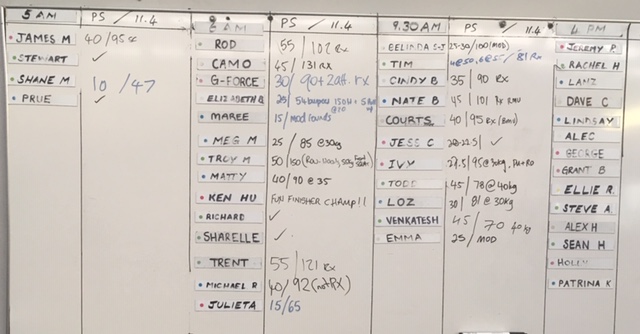 5 AM PS / 11.4
JAMES M 40/95
STEWART ✓
SHANE M 10 /47
PRUE ✓
AM PS / 11.4
ROD 55 / 102 Rx
CAMO 45 / 131 RX
G-FORCE 30/ 90+ rx
ELIZABETH
MAREE 15/mod rounds
MEG M 25 / 85 @30kg
TROY M 50
MATTY 40/90 @ 35
KEN HU FUN FINISHER CHAMP!!
RICHARD ✓
SHARELLE ✓
TRENT 55/121 Rx
MICHAEL R 40/92 (not RX)
JULIETA 15/65
9.30 AM PS / 11.4
BELINDA S-J 25-30/100(MOD)
TIM 81 Rx
CINDY B 35 /90 Rx
NATE B 45 / 101 Rx RMU
COURTS 40/95 Rx
JESS C ✓
IVY
TODD 45/78@40kg
LOZ 30/ 81 @30kg
VENKATESH 45/ 70 40kg
EMMA 25/ MOD
4 PM
JEREMY P.
RACHEL H
LANZ
DAVE C
LINDSAY
ALEC
GEORGE
GRANT B
ELLIE R.
STEVE A
ALEX H
SEAN H
HOLLY
PATRINA K